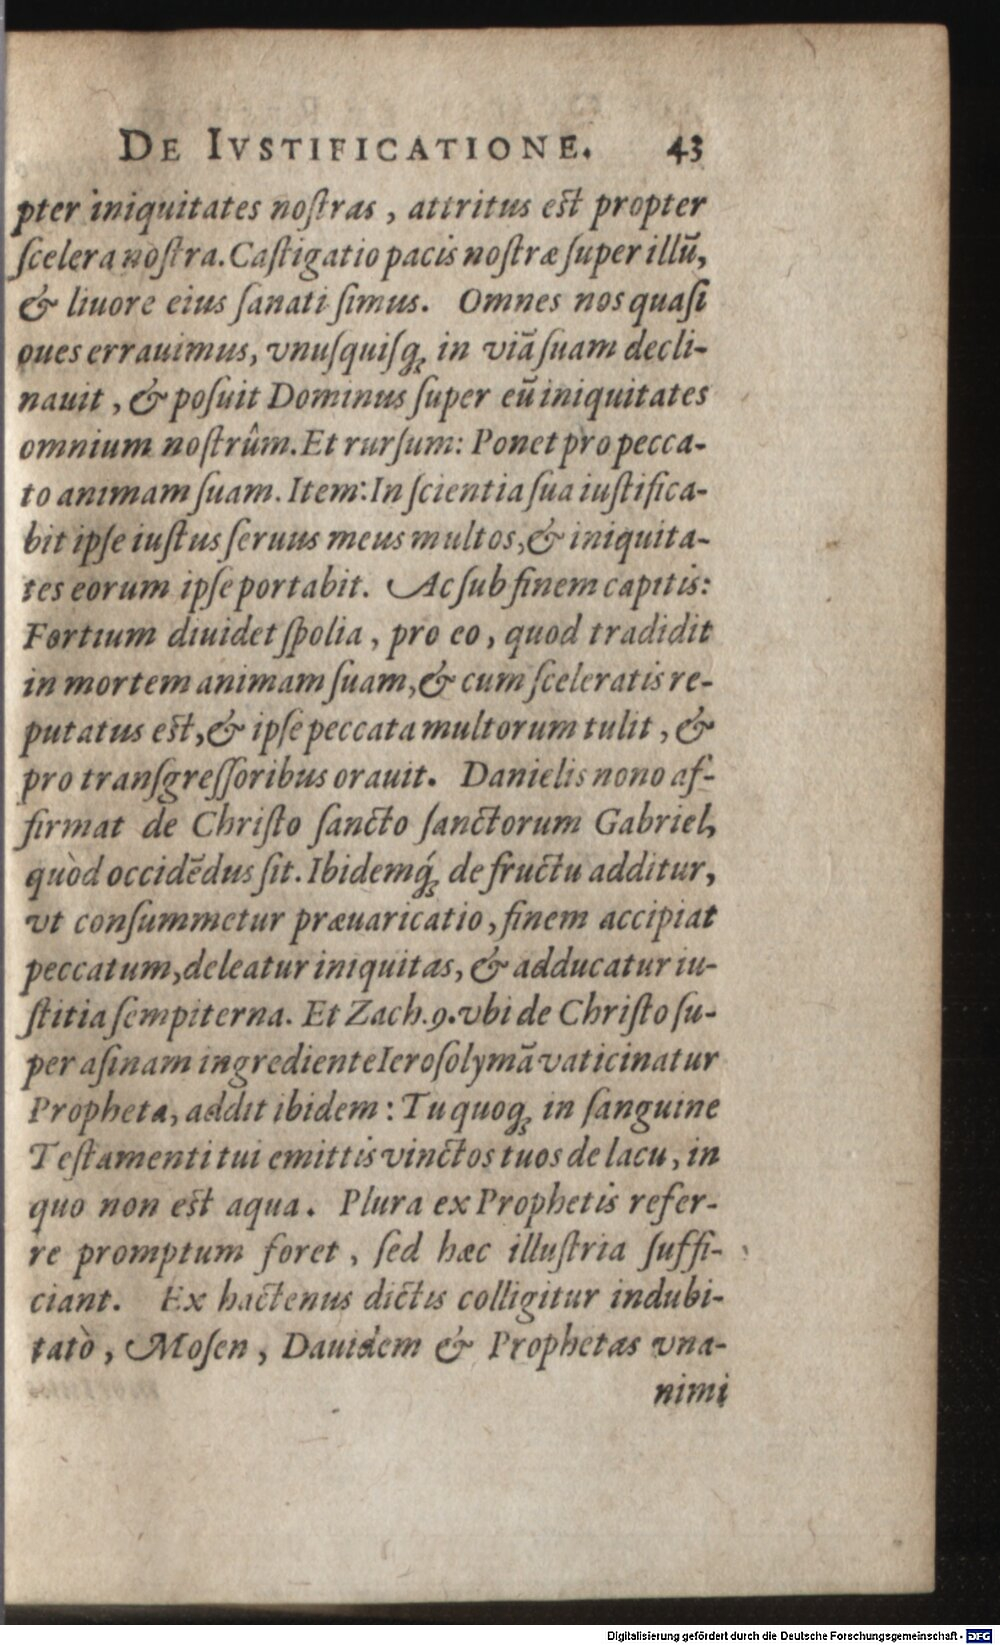 DE IVSTIFICATIONE. 43
pter iniquitates noſtras, attritus eſt propter
ſcelera noſtra. Caſtigatio pacis noſtræ ſuper illū,
& liuore eius ſanati ſimus. Omnes nos quaſi
oues errauimus, vnuſquiſq; in viā ſuam decli-
nauit, & poſuit Dominus ſuper eū iniquitates
omnium noſtrûm. Et rurſum: Ponet pro pecca-
to animam ſuam. Item: In ſcientia ſua iuſtifica-
bit ipſe iuſtus ſeruus meus multos, & iniquita-
tes eorum ipſe portabit. Ac ſub finem capitis:
Fortium diuidet ſpolia, pro eo, quod tradidit
in mortem animam ſuam, & cum ſceleratis re-
putatus eſt, & ipſe peccata multorum tulit, &
pro tranſgreſſoribus orauit. Danielis nono af-
firmat de Chriſto ſancto ſanctorum Gabriel,
quòd occidēdus ſit. Ibidemq́; de fructu additur,
vt conſummetur præuaricatio, finem accipiat
peccatum, deleatur iniquitas, & adducatur iu-
ſtitia ſempiterna. Et Zach. 9. vbi de Chriſto ſu-
per aſinam ingrediente Ieroſolymā vaticinatur
Propheta, addit ibidem: Tu quoq; in ſanguine
Teſtamenti tui emittis vinctos tuos de lacu, in
quo non eſt aqua. Plura ex Prophetis refer-
re promptum foret, ſed hæc illuſtria ſuffi-
ciant. Ex hactenus dictis colligitur indubi-
tatò, Moſen, Dauidem & Prophetas vna-
nimi
Digitalisierung gefördert durch die Deutsche Forschungsgemeinschaft - DFG